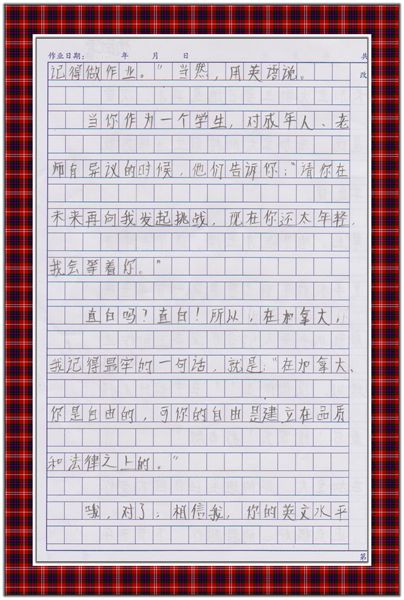 作业日期： 年 月 日 共
改
记得做作业。"当然，用英语说。
当你作为一个学生，对成年人、老
师有异议的时候，他们告诉你："请你在
未来再向我发起挑战，现在你还太年轻，
我会等着你。"
直白吗？直白！所以，在加拿大，
我记得最牢的一句话，就是："在加拿大、
你是自由的，可你的自由是建立在品质
和法律之上的。"
哦，对了，相信我，你的英文水平
第